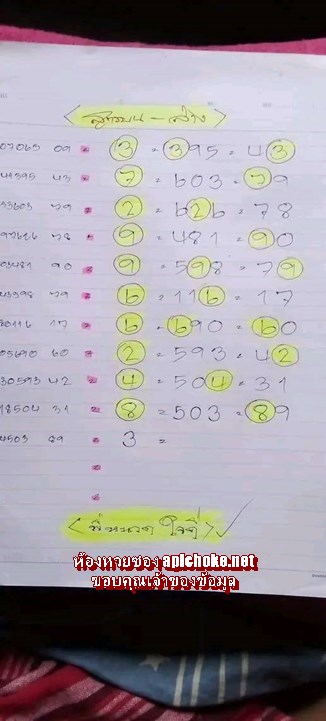 <สูตรบน - ล่าง>
07065 09 • 3 = 395 = 43
43 • 7 = 603 = 79
33603 79 • 2 = 626 = 78
78 • 9 = 481 = 90
90 • 9 = 598 = 79
79 • 6 = 116 = 17
17 • 6 = 690 = 60
05690 60 • 2 = 593 = 42
30593 42 • 4 = 504 = 31
18504 31 • 8 = 503 = 89
4503 89 • 3 =
ห้องหวยซอง apichoke.net
ขอบคุณเจ้าของข้อมูล